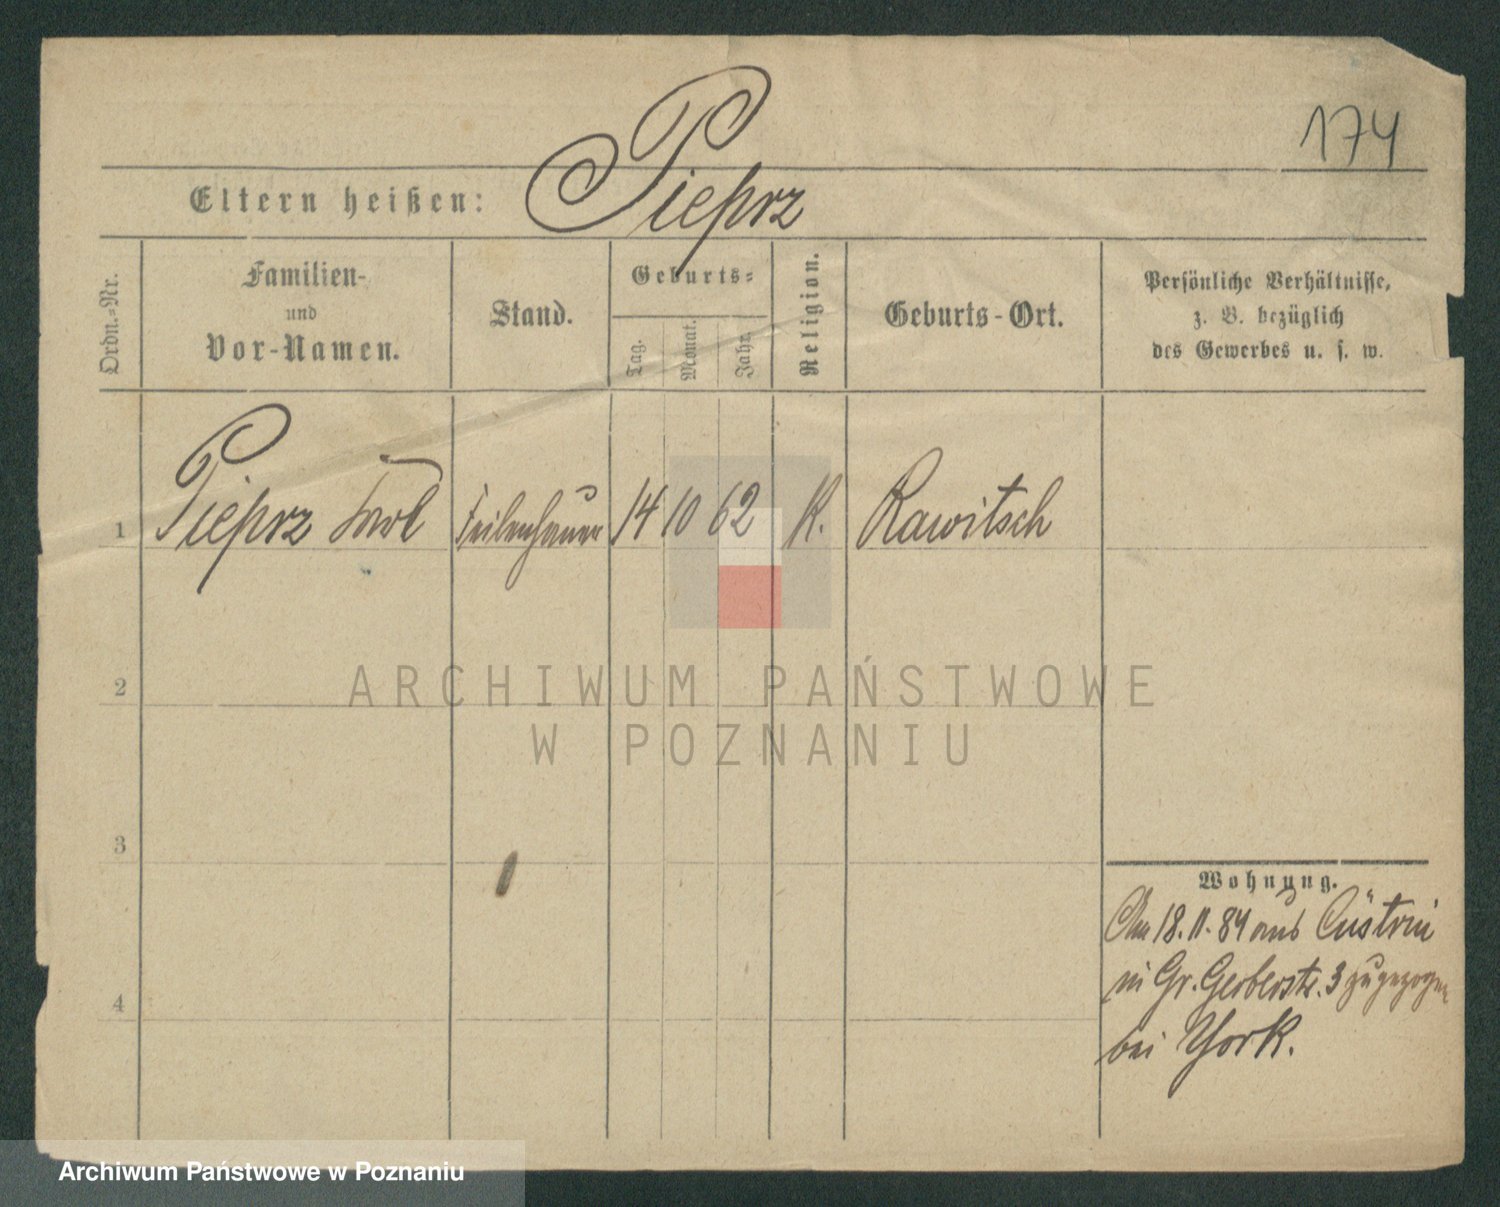 174
Eltern heißen: Pieprz
Ordn.-Nr.
Familien-
und
Vor-Namen.
Stand.
Geburts-
Tag.
Monat.
Jahr.
Religion.
Geburts-Ort.
Persönliche Verhältnisse,
z. B. bezüglich
des Gewerbes u. s. w.
1 Pieprz Karl Feilenhauer 14 10 62 K. Rawitsch
2
ARCHIWUM PAŃSTWOWE
W POZNANIU
3
Wohnung.
Am 18.11.84 aus Cüstrin
in Gr. Gerberstr. 3 zugezogen
4
bei York.
Archiwum Państwowe w Poznaniu